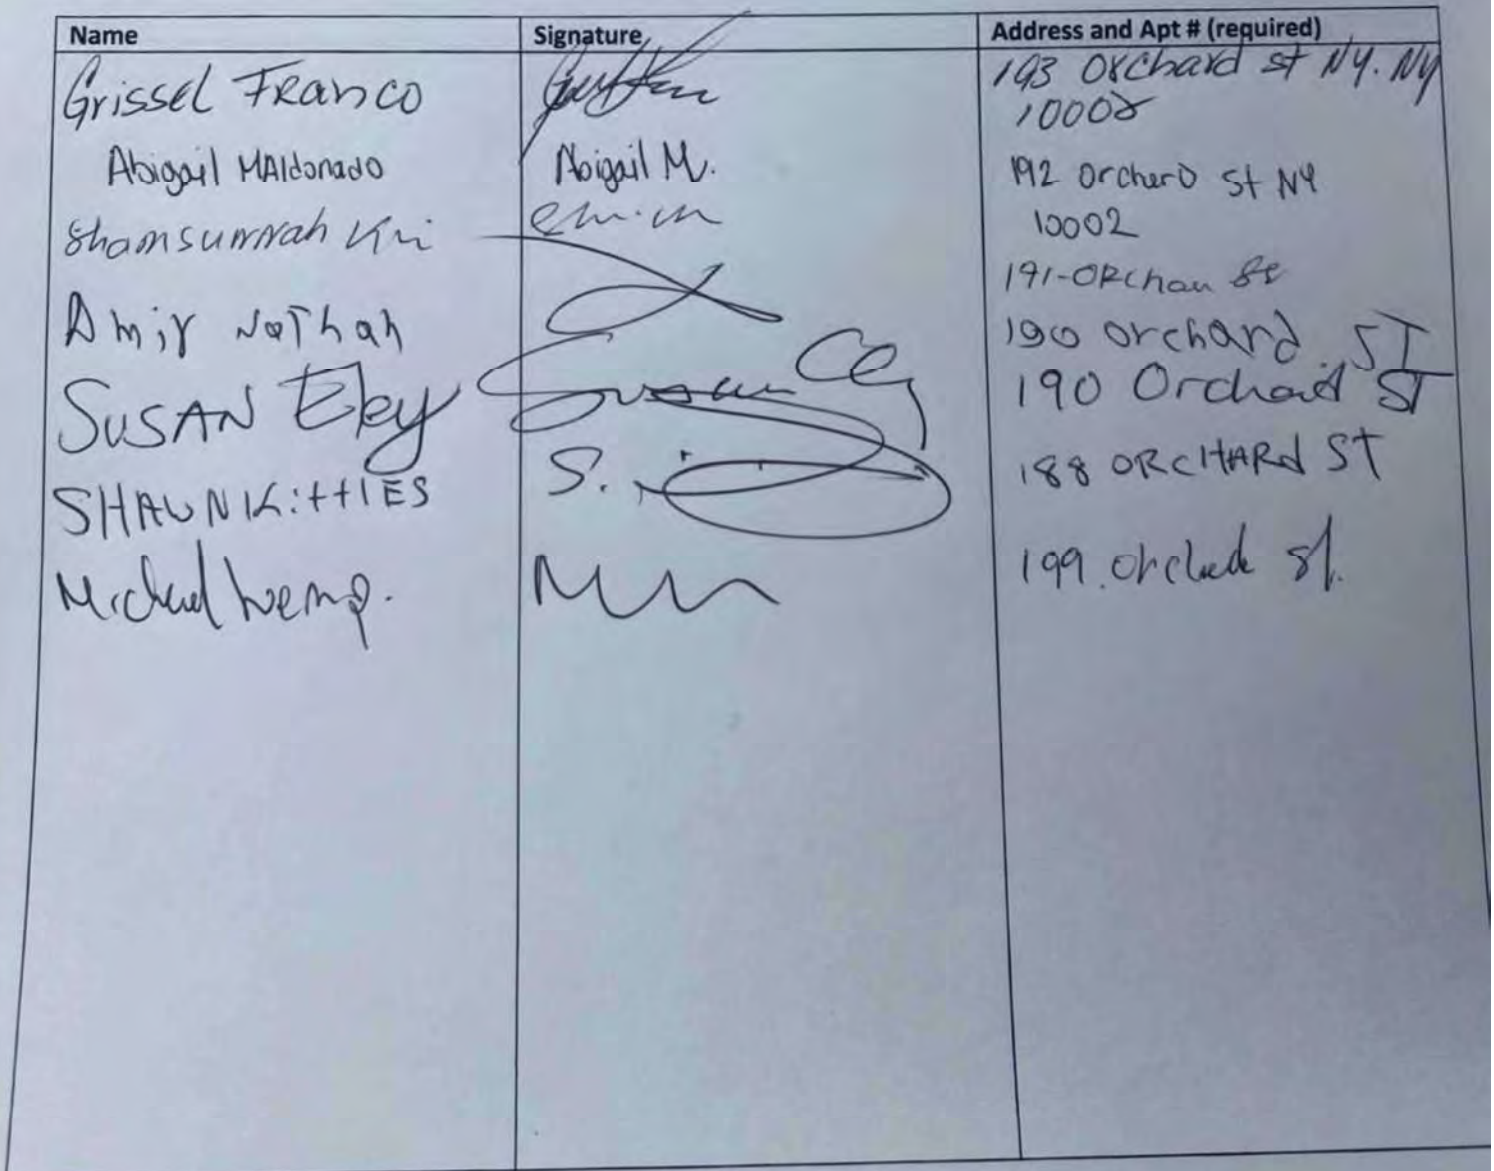 Name Signature Address and Apt # (required)
Grissel Franco 193 Orchard st NY. NY
10002
Abigail MAldonado Abigail M. 192 Orcherd St NY
10002
Shamsunnah
191-ORchau St
Amir Nathan 190 orchard ST
SUSAN Eley Susan 190 Orchard ST
SHAWN KittlES S. 188 ORCHARd ST
Michael 199. St.